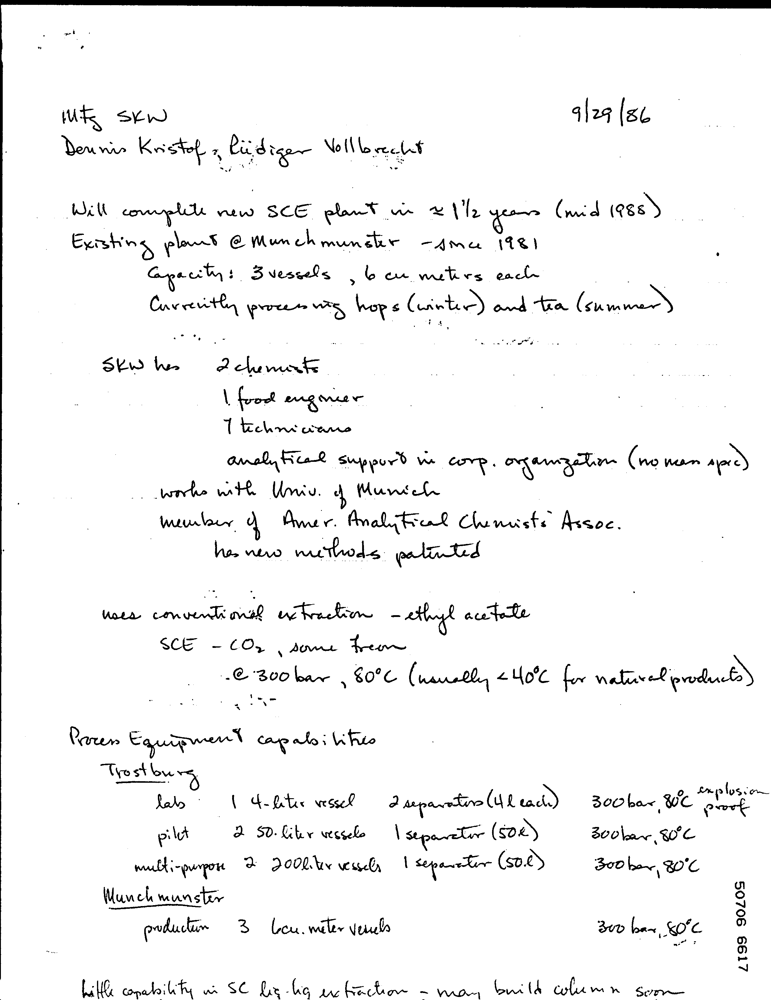 Mtg SKW 9/29/86
Dennis Kristof, Rüdiger Vollbrecht
Will complete new SCE plant in ≈ 1 1/2 years (mid 1988)
Existing plant @ Munchmunster - since 1981
Capacity: 3 vessels, 6 cu meters each
Currently processing hops (winter) and tea (summer)
SKW has 2 chemists
1 food engineer
7 technicians
analytical support in corp. organization (no mass spec)
works with Univ. of Munich
member of Amer. Analytical Chemists Assoc.
has new methods patented
uses conventional extraction - ethyl acetate
SCE - CO2, some freon
@ 300 bar, 80°C (usually <40°C for natural products)
Process Equipment capabilities
Trostburg
lab 1 4-liter vessel 2 separators (4 l each) 300 bar, 80°C explosion proof
pilot 2 50-liter vessels 1 separator (50 l) 300 bar, 80°C
multi-purpose 2 200 liter vessels 1 separator (50 l) 300 bar, 80°C
Munchmunster
production 3 6 cu. meter vessels 300 bar, 80°C
little capability in SC liq-liq extraction - may build column soon
50706 6617